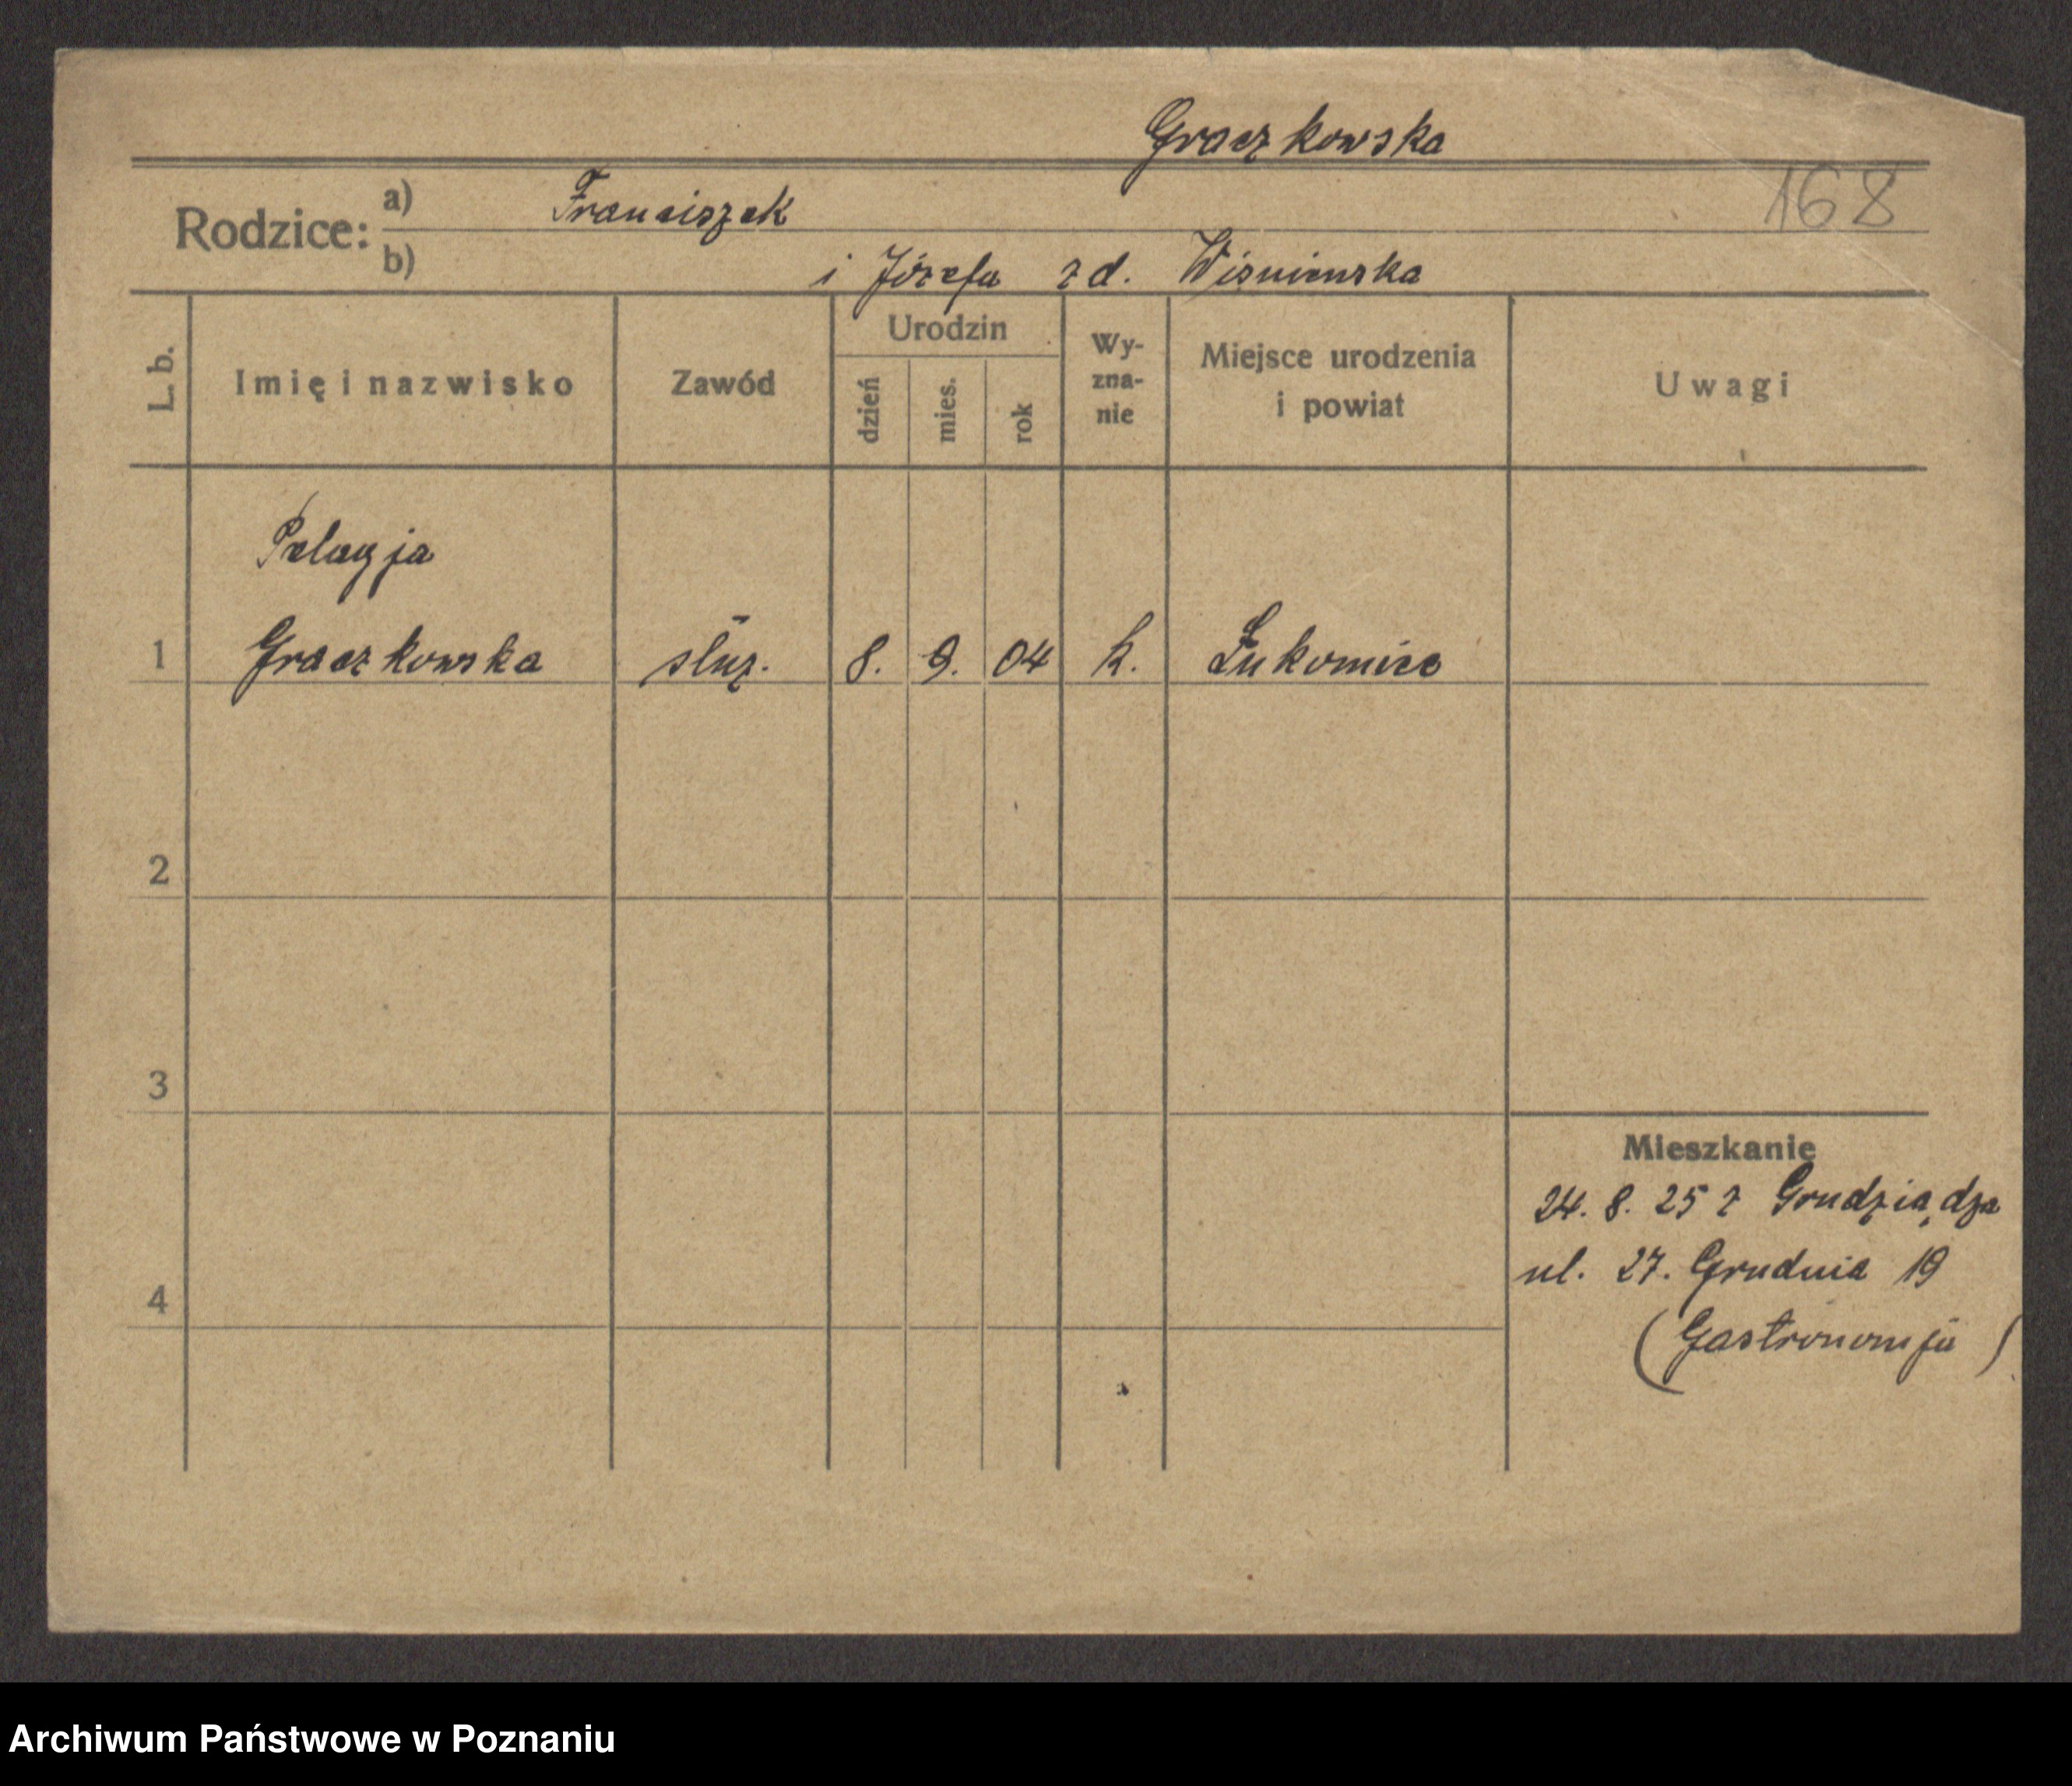 Graczkowska
168
Rodzice:
a) Franciszek
b) i Józefa z d. Wiśniewska
L. b.
Imię i nazwisko
Zawód
Urodzin
dzień
mies.
rok
Wy-
zna-
nie
Miejsce urodzenia
i powiat
Uwagi
Pelagja
1 Graczkowska służ. 8. 9. 04 k. Łukomice
2
3
4
Mieszkanie
24. 8. 25 z Grudziądza
ul. 27. Grudnia 19
(Gastronomja)
Archiwum Państwowe w Poznaniu